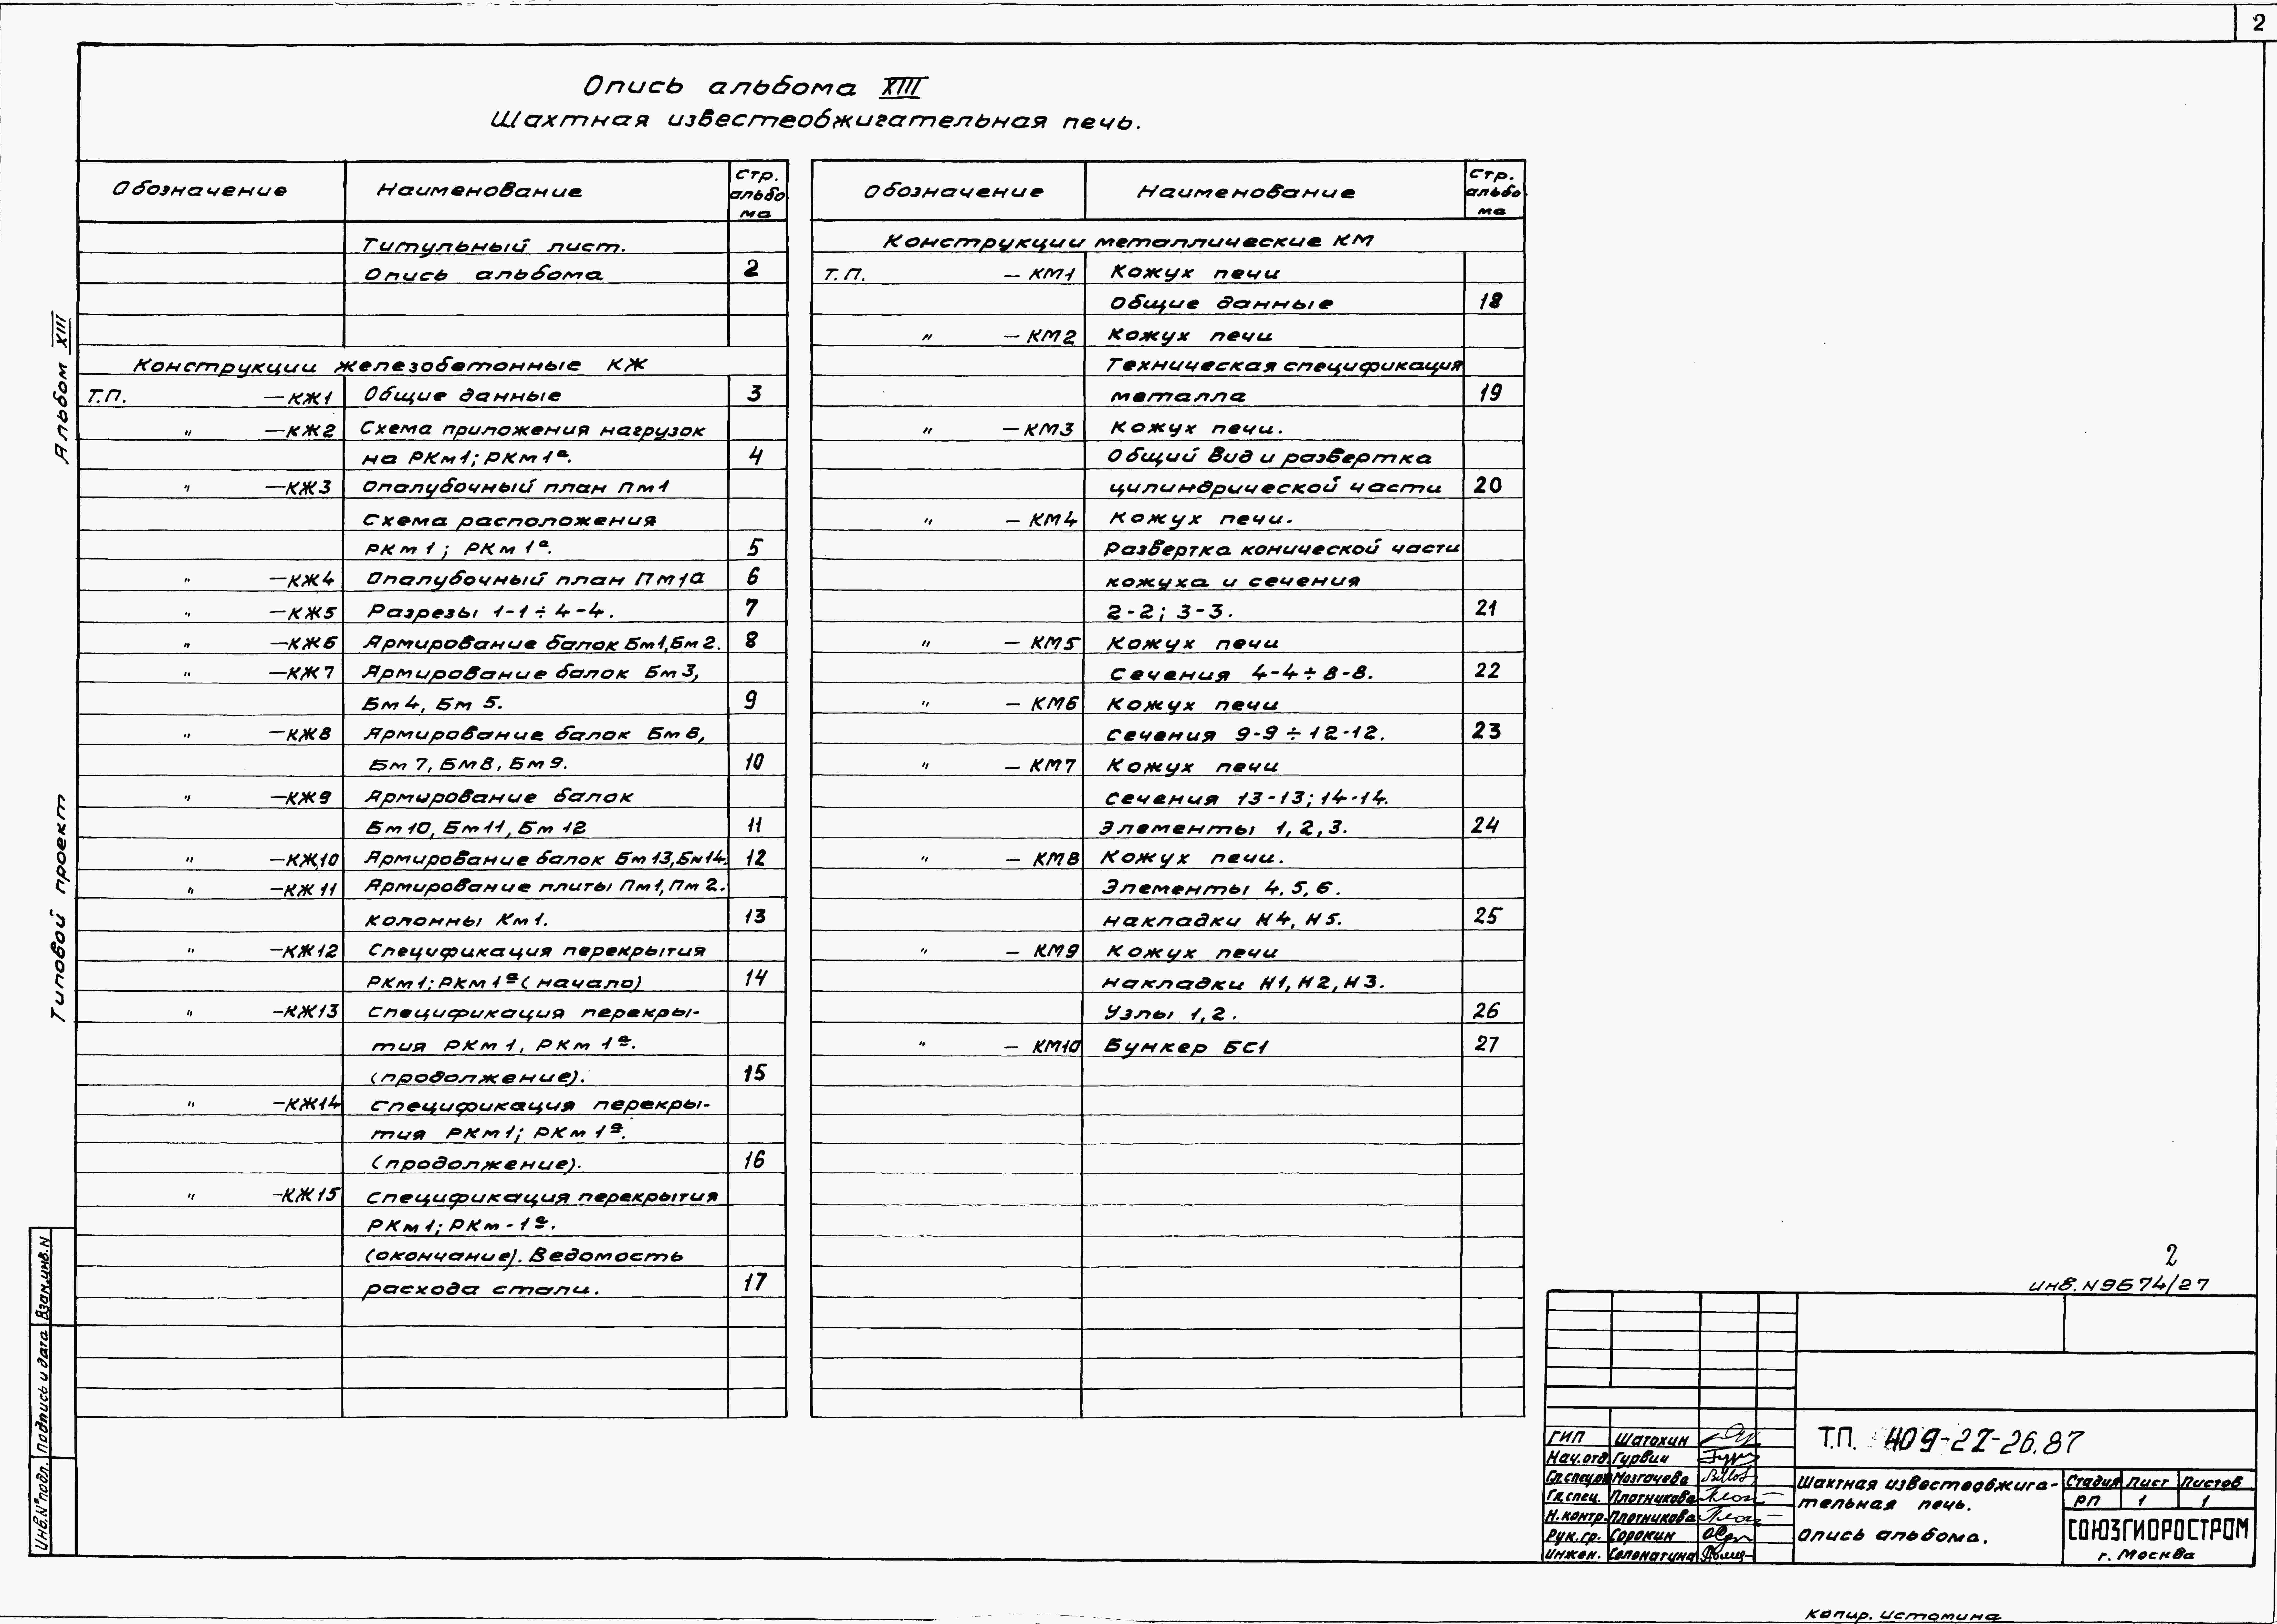 2
Опись альбома XIII
Шахтная известеобжигательная печь.
Обозначение Наименование Стр. альбо ма
Титульный лист.
Опись альбома 2
Конструкции железобетонные КЖ
Т.П. —КЖ1 Общие данные 3
" —КЖ2 Схема приложения нагрузок
на РКм1; РКм1а. 4
" —КЖ3 Опалубочный план Пм1
Схема расположения
РКм1; РКм1а. 5
" —КЖ4 Опалубочный план Пм1а 6
" —КЖ5 Разрезы 1-1÷4-4. 7
" —КЖ6 Армирование балок Бм1, Бм2. 8
" —КЖ7 Армирование балок Бм3,
Бм4, Бм5. 9
" —КЖ8 Армирование балок Бм6,
Бм7, Бм8, Бм9. 10
" —КЖ9 Армирование балок
Бм10, Бм11, Бм12 11
" —КЖ10 Армирование балок Бм13, Бм14. 12
" —КЖ11 Армирование плиты Пм1, Пм2.
колонны Км1. 13
" —КЖ12 Спецификация перекрытия
РКм1; РКм1а (начало) 14
" —КЖ13 Спецификация перекры-
тия РКм1, РКм1а.
(продолжение). 15
" —КЖ14 Спецификация перекры-
тия РКм1; РКм1а.
(продолжение). 16
" —КЖ15 Спецификация перекрытия
РКм1; РКм-1а.
(окончание). Ведомость
расхода стали. 17
Обозначение Наименование Стр. альбо ма
Конструкции металлические КМ
Т.П. — КМ1 Кожух печи
Общие данные 18
" — КМ2 Кожух печи
Техническая спецификация
металла 19
" — КМ3 Кожух печи.
Общий вид и развертка
цилиндрической части 20
" — КМ4 Кожух печи.
Развертка конической части
кожуха и сечения
2-2; 3-3. 21
" — КМ5 Кожух печи
Сечения 4-4÷8-8. 22
" — КМ6 Кожух печи
Сечения 9-9÷12-12. 23
" — КМ7 Кожух печи
Сечения 13-13; 14-14.
Элементы 1, 2, 3. 24
" — КМ8 Кожух печи.
Элементы 4, 5, 6.
накладки Н4, Н5. 25
" — КМ9 Кожух печи
накладки Н1, Н2, Н3.
Узлы 1, 2. 26
" — КМ10 Бункер БС1 27
Альбом XIII
Типовой проект
Взам.инв.N
Подпись и дата
Инв.N°подл.
2
инв. N 9674/27
ГИП Шатохин
Нач.отд. Гурвич
Гл.спец. Мозгачева
Гл.спец. Плотникова
Н.контр. Плотникова
Рук.гр. Сорокин
Инжен. Соломатина
Т.П. 409-22-26.87
Шахтная известеобжига-
тельная печь.
Опись альбома.
Стадия Лист Листов
РП 1 1
СОЮЗГИПРОСТРОМ
г. Москва
Копир. Истомина